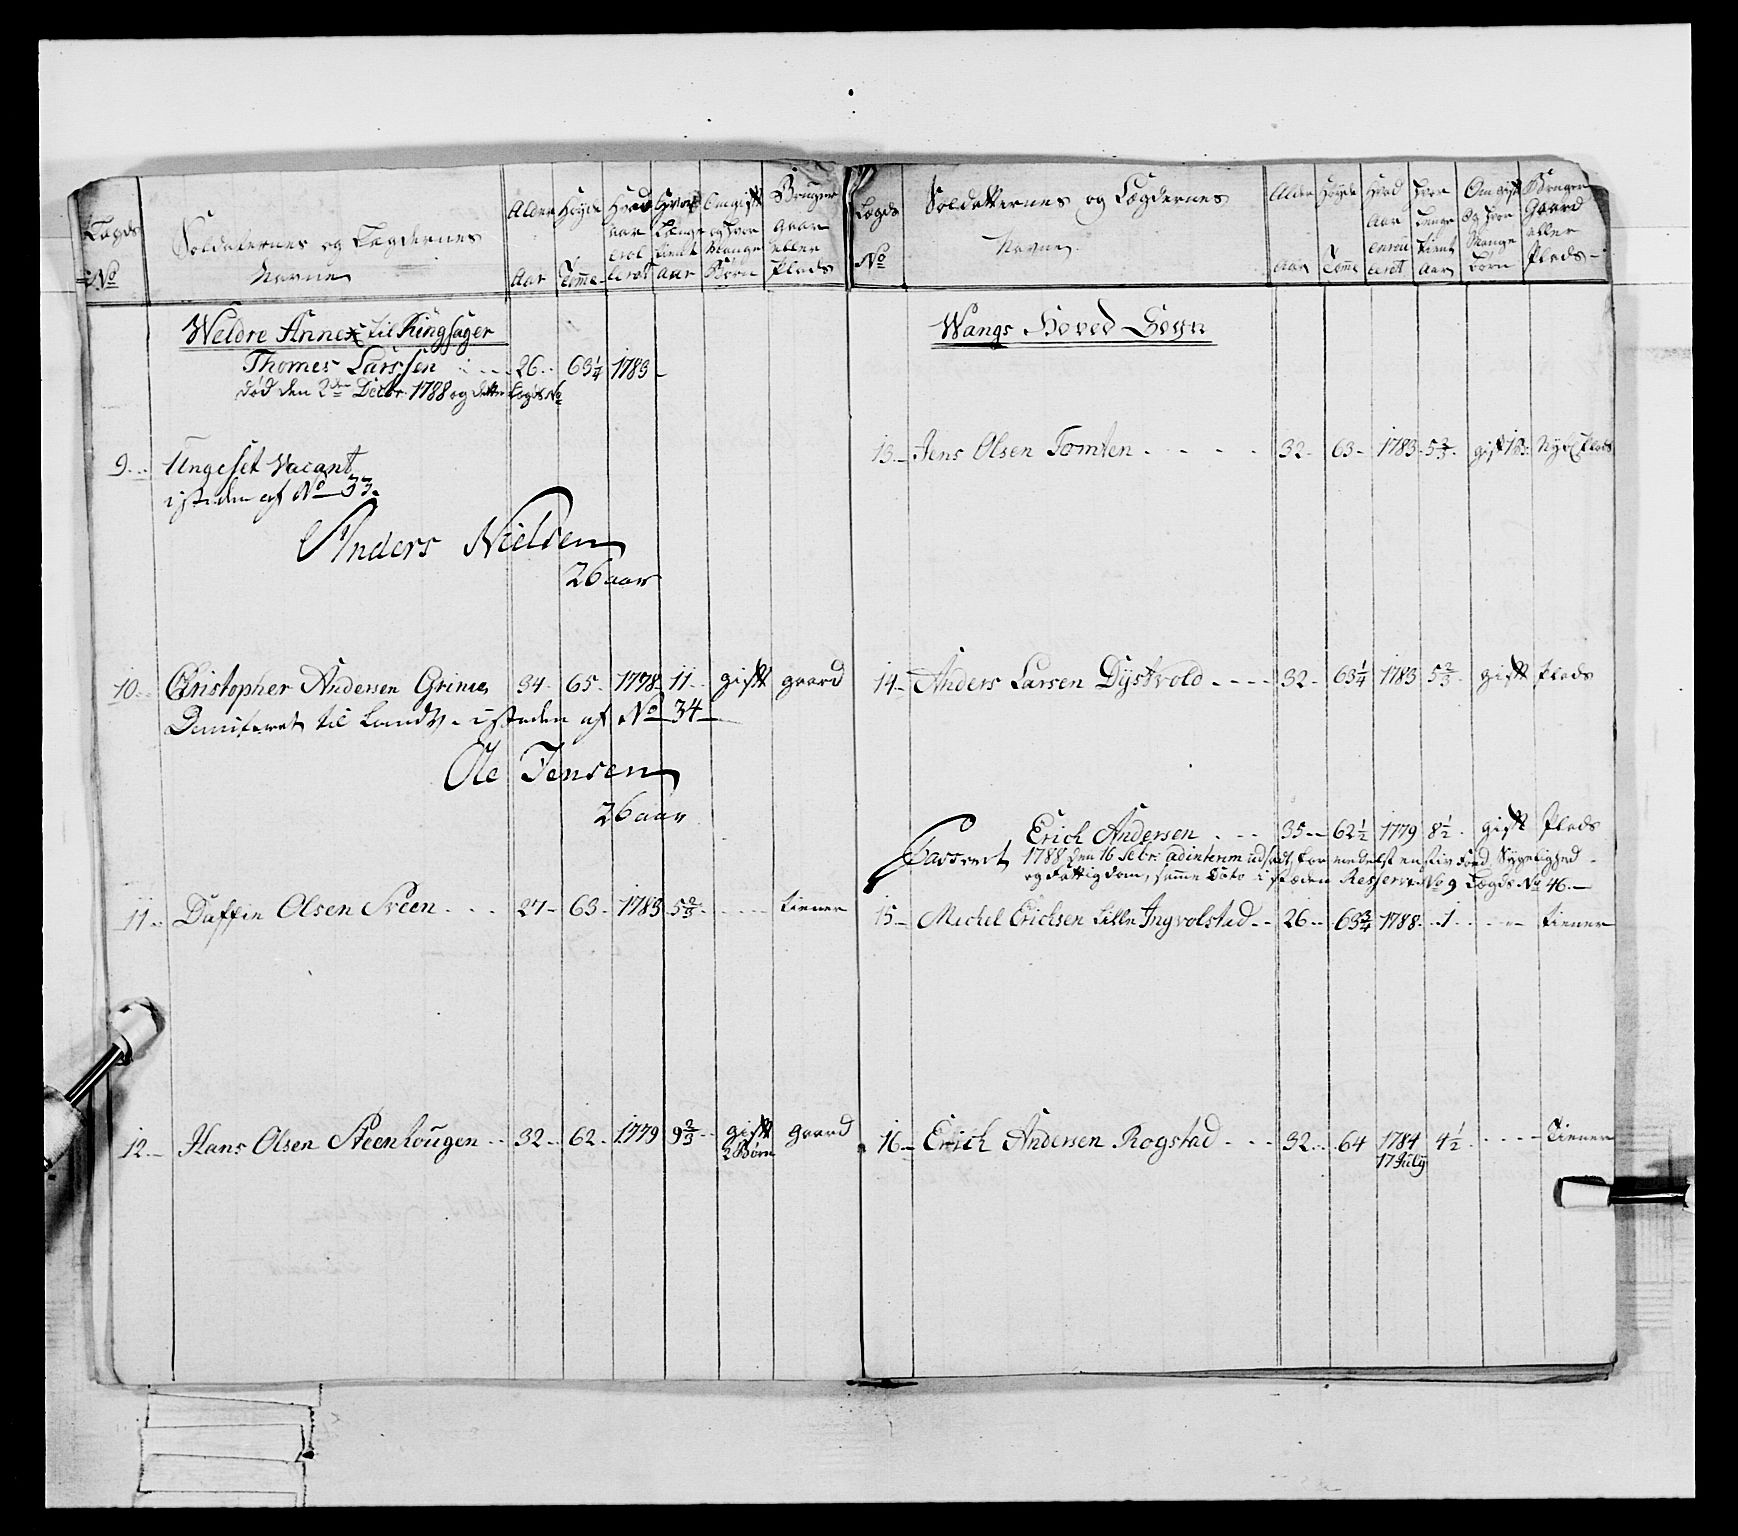 Lægds No
Soldaternes og Lægdernes Navne
Alder Aar
Høyde Tomme
Hvad aar
Hvor Længe tient aar
Om gift og hvor Mange Børn
Bruger gaar eller Plads
Weldre Annex til Ringsager
Thomes Larssen 26 63 1/4 1783
død den 2den Decbr. 1788 og dette Lægds No
9. Ungeset Vacant
i steden af No 33.
Anders Nielsen
26 aar
10. Christopher Andersen Grime 34 65 1778 11 gift gaard
Demiteret til Landv. i steden af No 34
Ole Jensen
26 aar
11. Daffin Olsen Sveen 27 63 1783 5 2/3 tiener
12. Hans Olsen Steenhougen 32 62 1779 9 2/3 gift gaard
2 Børn
Lægds No
Soldatternes og Lægdernes Navne
Alder Aar
Høyde Tomme
Hvad Aar
Hvor Længe tient Aar
Om gift Og hvor Mange Børn
Bruger Gaard eller Plads
Wangs Hoved Sogn
13. Jens Olsen Tomten 32 63 1783 5 2/3 gift
14. Anders Larsen Dystvold 32 63 1/4 1783 5 2/3 gift Plads
Erich Andersen 35 62 1/2 1779 8 1/2 gift Plads
Casseret 1788 den 16 Febr: adinterim udsadt, formedelst en stiv Foed, Sygelighed
og Fattigdom, samme Dato i stæden Reserve No 9 Lægds No 46.
15. Michel Erichsen Lille Ingvolstad 26 63 3/4 1788 1 tiener
16. Erich Andersen Rogstad 32 64 1784 4 1/2 Tiener
17 July